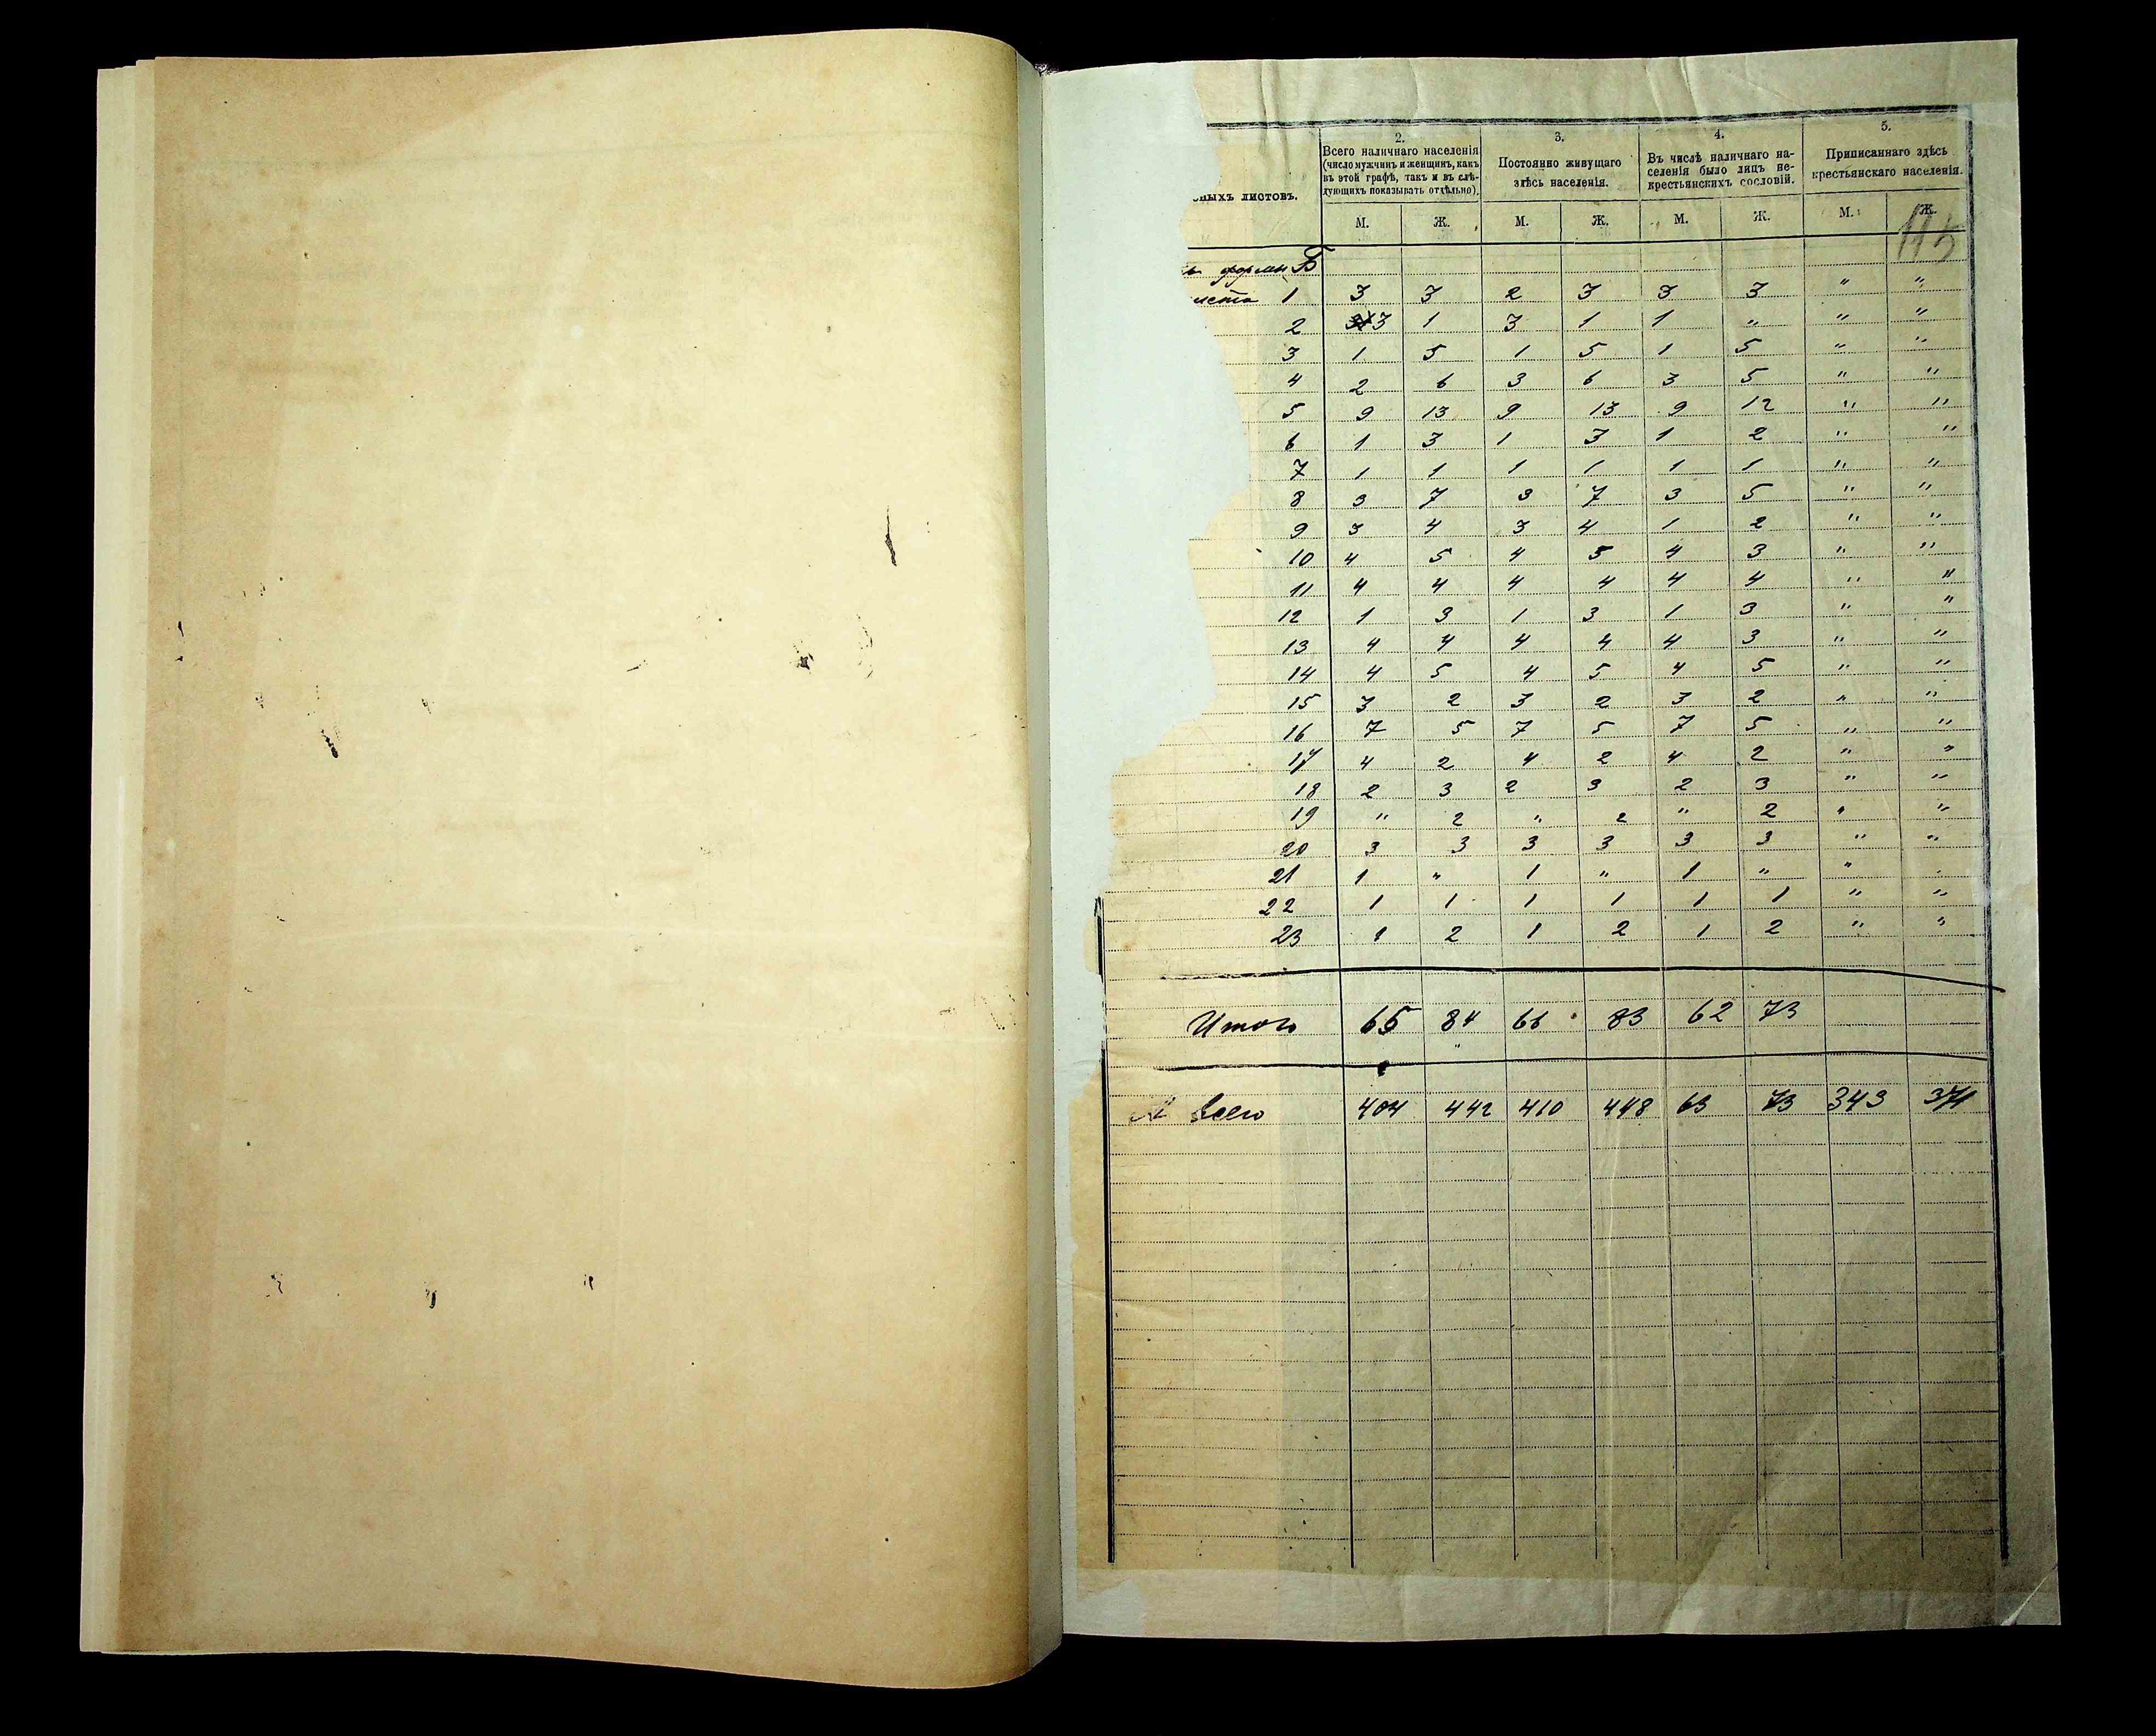 2. 3. 4. 5.
Всего наличнаго населенія (число мужчинъ и женщинъ, какъ въ этой графѣ, такъ и въ слѣ-дующихъ показывать отдѣльно).
Постоянно живущаго здѣсь населенія.
Въ числѣ наличнаго на-селенія было лицъ не-крестьянскихъ сословій.
Приписаннаго здѣсь крестьянскаго населенія.
ныхъ листовъ.
М. Ж. М. Ж. М. Ж. М. Ж.
115
формы Б
1 3 3 2 3 3 3 " "
2 3 1 3 1 1 " " "
3 1 5 1 5 1 5 " "
4 2 6 3 6 3 5 " "
5 9 13 9 13 9 12 " "
6 1 3 1 3 1 2 " "
7 1 1 1 1 1 1 " "
8 3 7 3 7 3 5 " "
9 3 4 3 4 1 2 " "
10 4 5 4 5 4 3 " "
11 4 4 4 4 4 4 " "
12 1 3 1 3 1 3 " "
13 4 4 4 4 4 3 " "
14 4 5 4 5 4 5 " "
15 3 2 3 2 3 2 " "
16 7 5 7 5 7 5 " "
17 4 2 4 2 4 2 " "
18 2 3 2 3 2 3 " "
19 " 2 " 2 " 2 " "
20 3 3 3 3 3 3 " "
21 1 " 1 " 1 " "
22 1 1 1 1 1 1 " "
23 1 2 1 2 1 2 " "
Итого 65 84 66 83 62 73
А всего 404 442 410 448 63 73 343 371